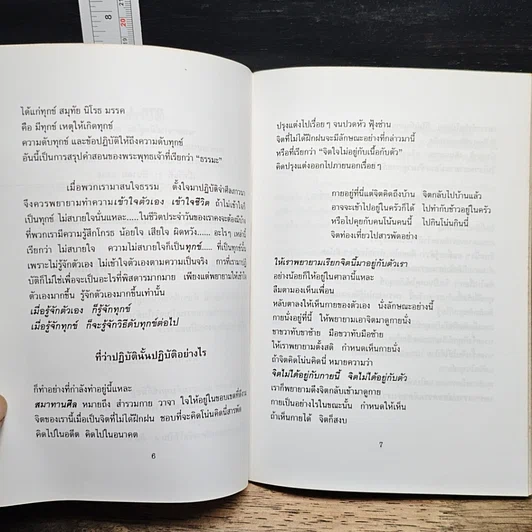 8
20
21
ได้แก่ทุกข์ สมุทัย นิโรธ มรรค
คือ มีทุกข์ เหตุให้เกิดทุกข์
ความดับทุกข์ และข้อปฏิบัติให้ถึงความดับทุกข์
อันนี้เป็นการสรุปคำสอนของพระพุทธเจ้าที่เรียกว่า “ธรรมะ”
เมื่อพวกเรามาสนใจธรรม ตั้งใจมาปฏิบัติจำศีลภาวนา
จึงควรพยายามทำความเข้าใจตัวเอง เข้าใจชีวิต ถ้าไม่เข้าใจก็
เป็นทุกข์ ไม่สบายใจนั่นแหละ..... ในชีวิตประจำวันของเราคงจะต้องมีบ้าง
ที่พวกเรามีความรู้สึกโกรธ น้อยใจ เสียใจ ผิดหวัง..... อะไรๆ เหล่านี้
เรียกว่า ไม่สบายใจ ความไม่สบายใจก็เป็นทุกข์..... ที่เป็นทุกข์นั้น
เพราะไม่รู้จักตัวเอง ไม่เข้าใจตัวเองตามความเป็นจริง การที่เรามาปฏิ-
บัติก็ไม่ใช่เพื่อจะเป็นอะไรที่พิสดารมากมาย เพียงแต่พยายามให้เข้าใจ
ตัวเองมากขึ้น รู้จักตัวเองมากขึ้นเท่านั้น
เมื่อรู้จักตัวเอง ก็รู้จักทุกข์
เมื่อรู้จักทุกข์ ก็จะรู้จักวิธีดับทุกข์ต่อไป
ที่ว่าปฏิบัตินั้นปฏิบัติอย่างไร
ก็ทำอย่างที่กำลังทำอยู่นี้แหละ
สมาทานศีล หมายถึง สำรวมกาย วาจา ใจให้อยู่ในขอบเขตที่ดีงาม
จิตของเรานี้เมื่อเป็นจิตที่ไม่ได้ฝึกฝน ชอบที่จะคิดโน่นคิดนี่สารพัด
คิดไปในอดีต คิดไปในอนาคต
6
ปรุงแต่งไปเรื่อยๆ จนปวดหัว ฟุ้งซ่าน
จิตที่ไม่ได้ฝึกฝนจะมีลักษณะอย่างที่กล่าวมานี้
หรือที่เรียกว่า “จิตใจไม่อยู่กับเนื้อกับตัว”
คิดปรุงแต่งออกไปภายนอกเรื่อยๆ
กายอยู่ที่นี่แต่จิตคิดถึงบ้าน จิตกลับไปบ้านแล้ว
อาจจะเข้าไปอยู่ในครัวก็ได้ ไปทำกับข้าวอยู่ในครัว
หรือไปคุยกับคนโน้นคนนี้ ไปกินโน่นกินนี่
จิตท่องเที่ยวไปสารพัดอย่าง
ให้เราพยายามเรียกจิตนี้มาอยู่กับตัวเรา
อย่างน้อยก็ให้อยู่ในศาลานี้แหละ
ลืมตามองเห็นเพื่อน
หลับตาลงให้เห็นกายของตัวเอง นั่งลักษณะอย่างนี้
กายนั่งอยู่ที่นี่ ให้พยายามเอาจิตมาดูกายนั่ง
ขาขวาทับขาซ้าย มือขวาทับมือซ้าย
ให้เราพยายามตั้งสติ กำหนดเห็นกายนั่ง
ถ้าจิตคิดโน่นคิดนี่ หมายความว่า
จิตไม่ได้อยู่กับกายนี้ จิตไม่ได้อยู่กับตัว
เราก็พยายามดึงจิตกลับเข้ามาดูกาย
กายเป็นอย่างไรในขณะนั้น กำหนดให้เห็น
ถ้าเห็นกายได้ จิตก็สงบ
7